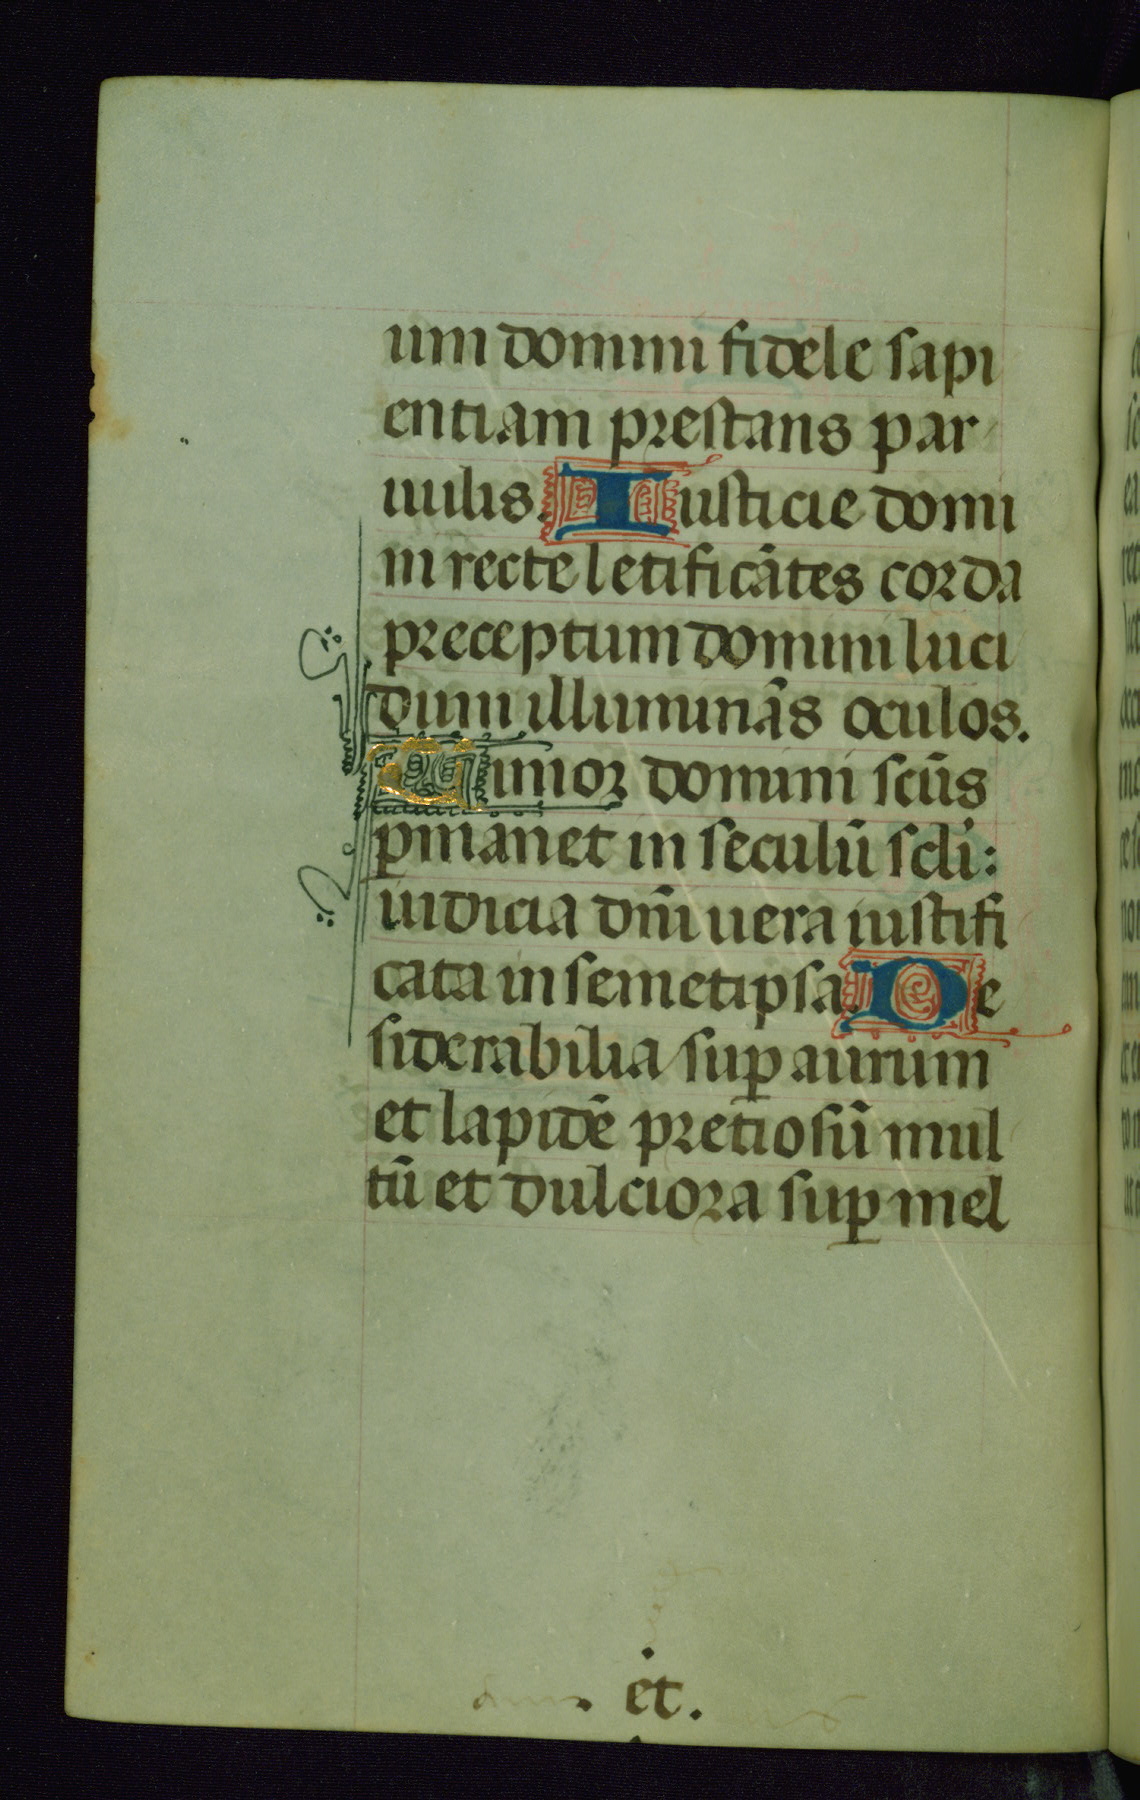 um domini fidele sapi
entiam prestans par
uulis. Iusticie domi
ni recte letificātes corda
preceptum domini luci
dum illuminās oculos.
Timor domini scūs
ꝑmanet in seculū scli:
iudicia dn̄i uera iustifi
cata in semetipsa. De
siderabilia suꝑ aurum
et lapidē pretiosū mul
tū et dulciora suꝑ mel
. et .